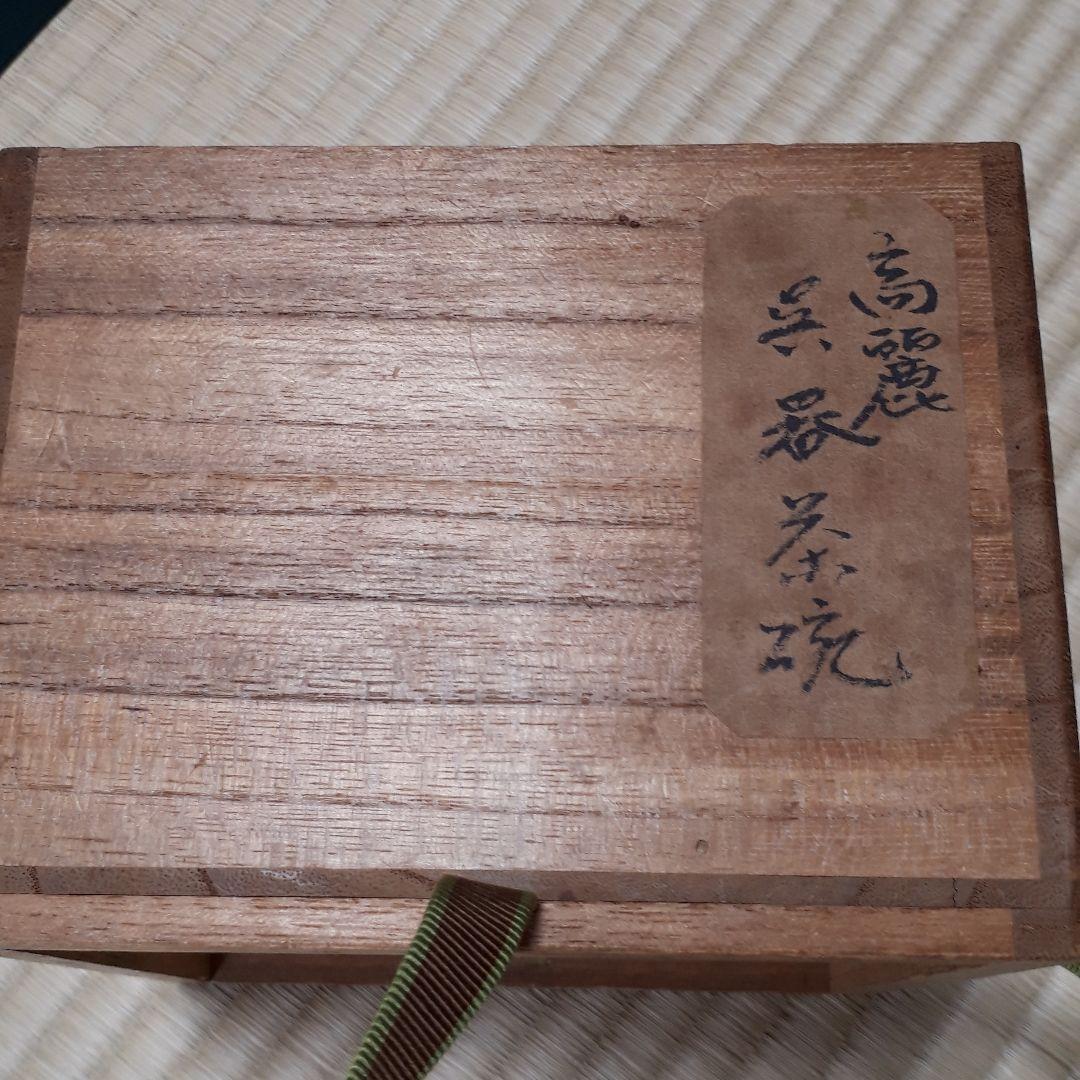 高麗
呉器茶碗